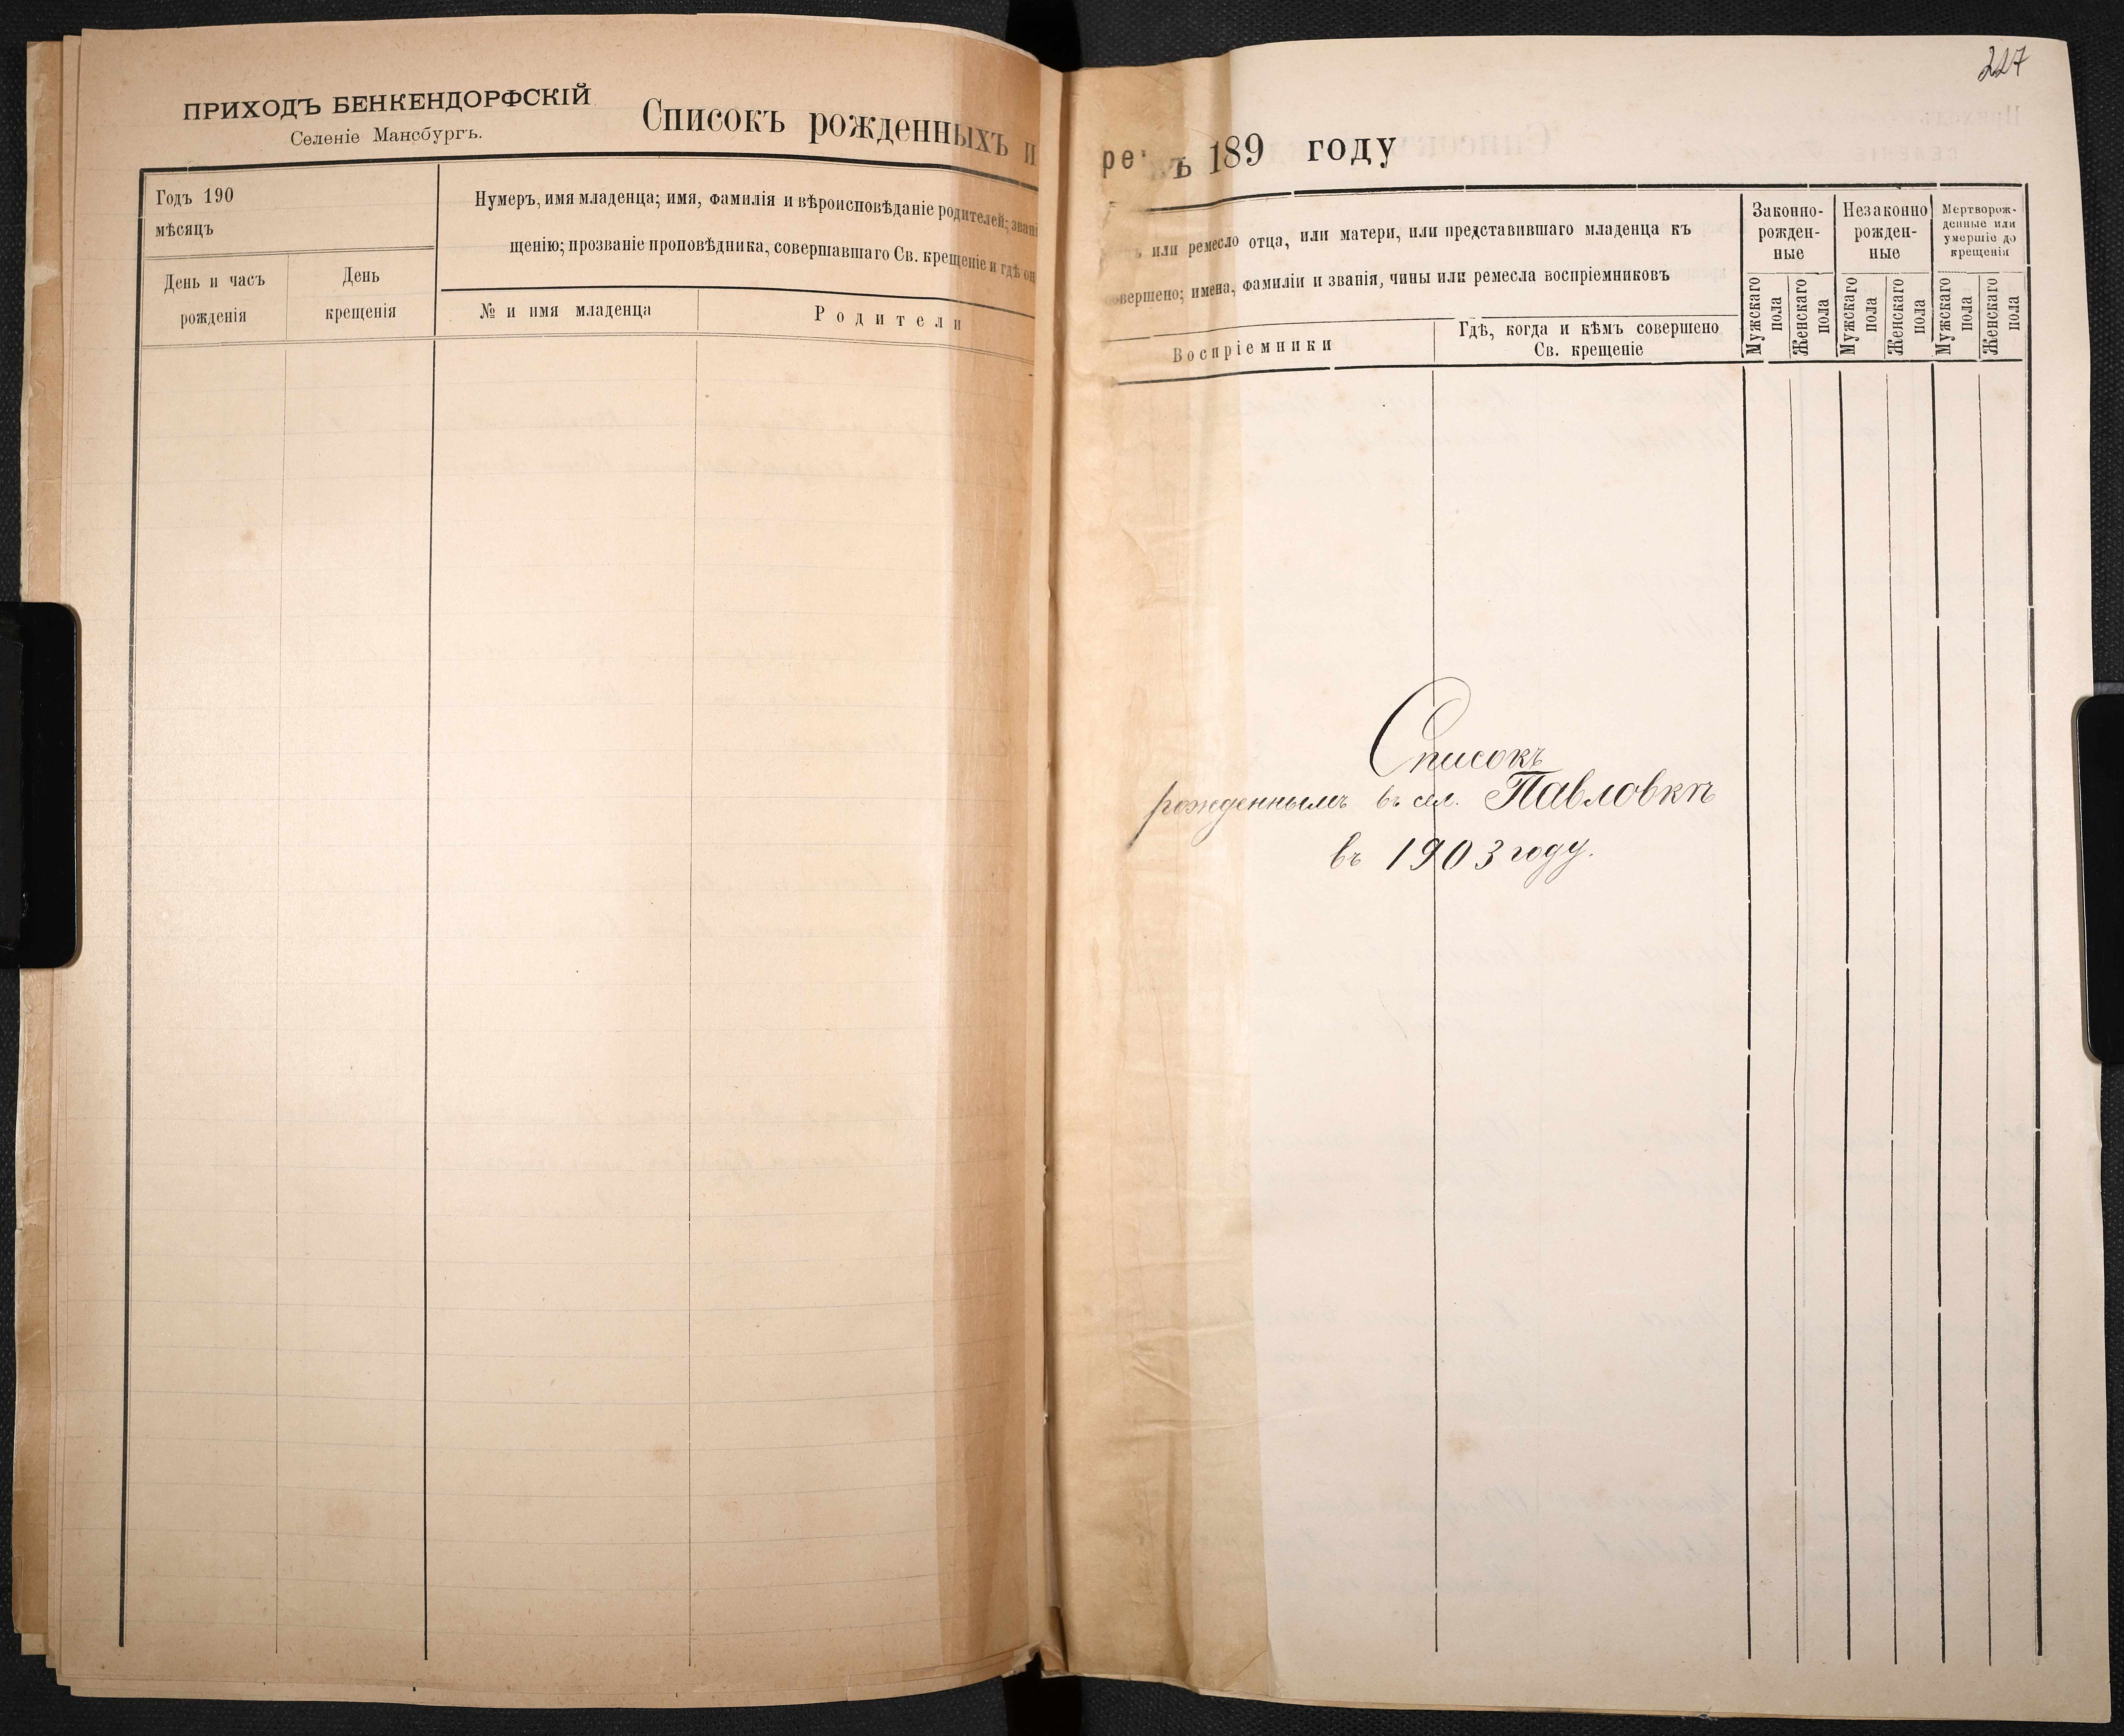 ПРИХОДЪ БЕНКЕНДОРФСКІЙ
Селеніе Мансбургъ.
Списокъ рожденныхъ и
Годъ 190
мѣсяцъ
День и часъ
рожденія
День
крещенія
Нумеръ, имя младенца; имя, фамилія и вѣроисповѣданіе родителей; звані
щенію; прозваніе проповѣдника, совершавшаго Св. крещеніе и гдѣ он
№ и имя младенца
Родители
227
ъ 189 году
или ремесло отца, или матери, или представившаго младенца къ
овершено; имена, фамиліи и званія, чины или ремесла воспріемниковъ
Воспріемники
Гдѣ, когда и кѣмъ совершено
Св. крещеніе
Законно-
рожден-
ные
Незаконно
рожден-
ные
Мертворож-
денные или
умершіе до
крещенія
Мужскаго
пола
Женскаго
пола
Мужскаго
пола
Женскаго
пола
Мужскаго
пола
Женскаго
пола
Списокъ
рожденнымъ въ сел. Павловкѣ
въ 1903 году.